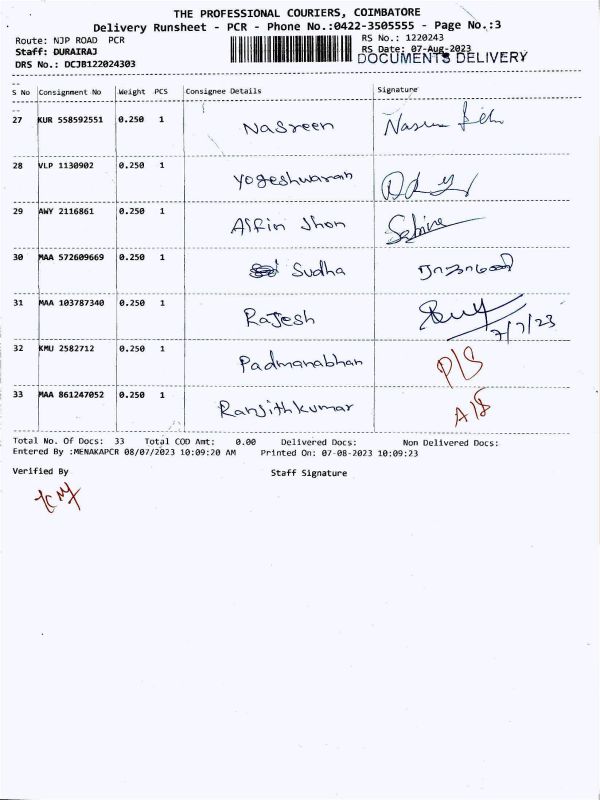 THE PROFESSIONAL COURIERS, COIMBATORE
Delivery Runsheet - PCR - Phone No.:0422-3505555 - Page No.:3
Route: NJP ROAD PCR RS No.: 1220243
Staff: DURAIRAJ RS Date: 07-Aug-2023
DRS No.: DCJB122024303 DOCUMENTS DELIVERY
S No Consignment No Weight PCS Consignee Details Signature
27 KUR 558592551 0.250 1 Nasreen
28 VLP 1130902 0.250 1 Yogeshwaran
29 AWY 2116861 0.250 1 Alfin Jhon
30 MAA 572609669 0.250 1 Sudha
31 MAA 103787340 0.250 1 Rajesh 7/7/23
32 KMU 2582712 0.250 1 Padmanabhan P/S
33 MAA 861247052 0.250 1 Ranjithkumar A/S
Total No. Of Docs: 33 Total COD Amt: 0.00 Delivered Docs: Non Delivered Docs:
Entered By :MENAKAPCR 08/07/2023 10:09:20 AM Printed On: 07-08-2023 10:09:23
Verified By Staff Signature